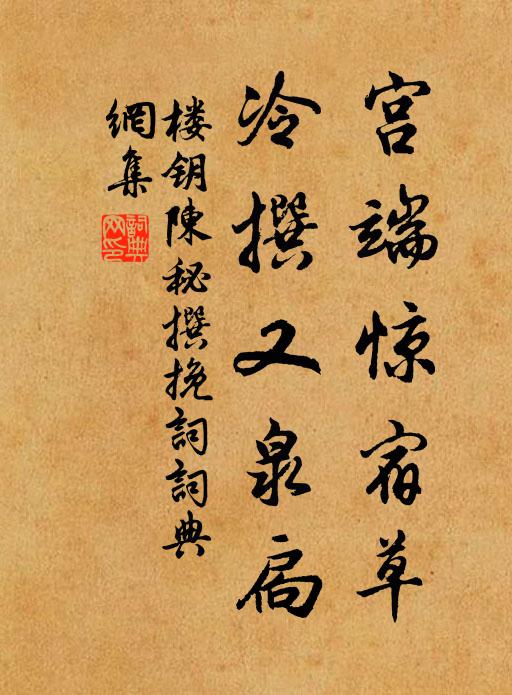 宫端惊宿草
冷撰又泉扃
楼钥陳秘撰挽詞詞典
網集
詞典
网印